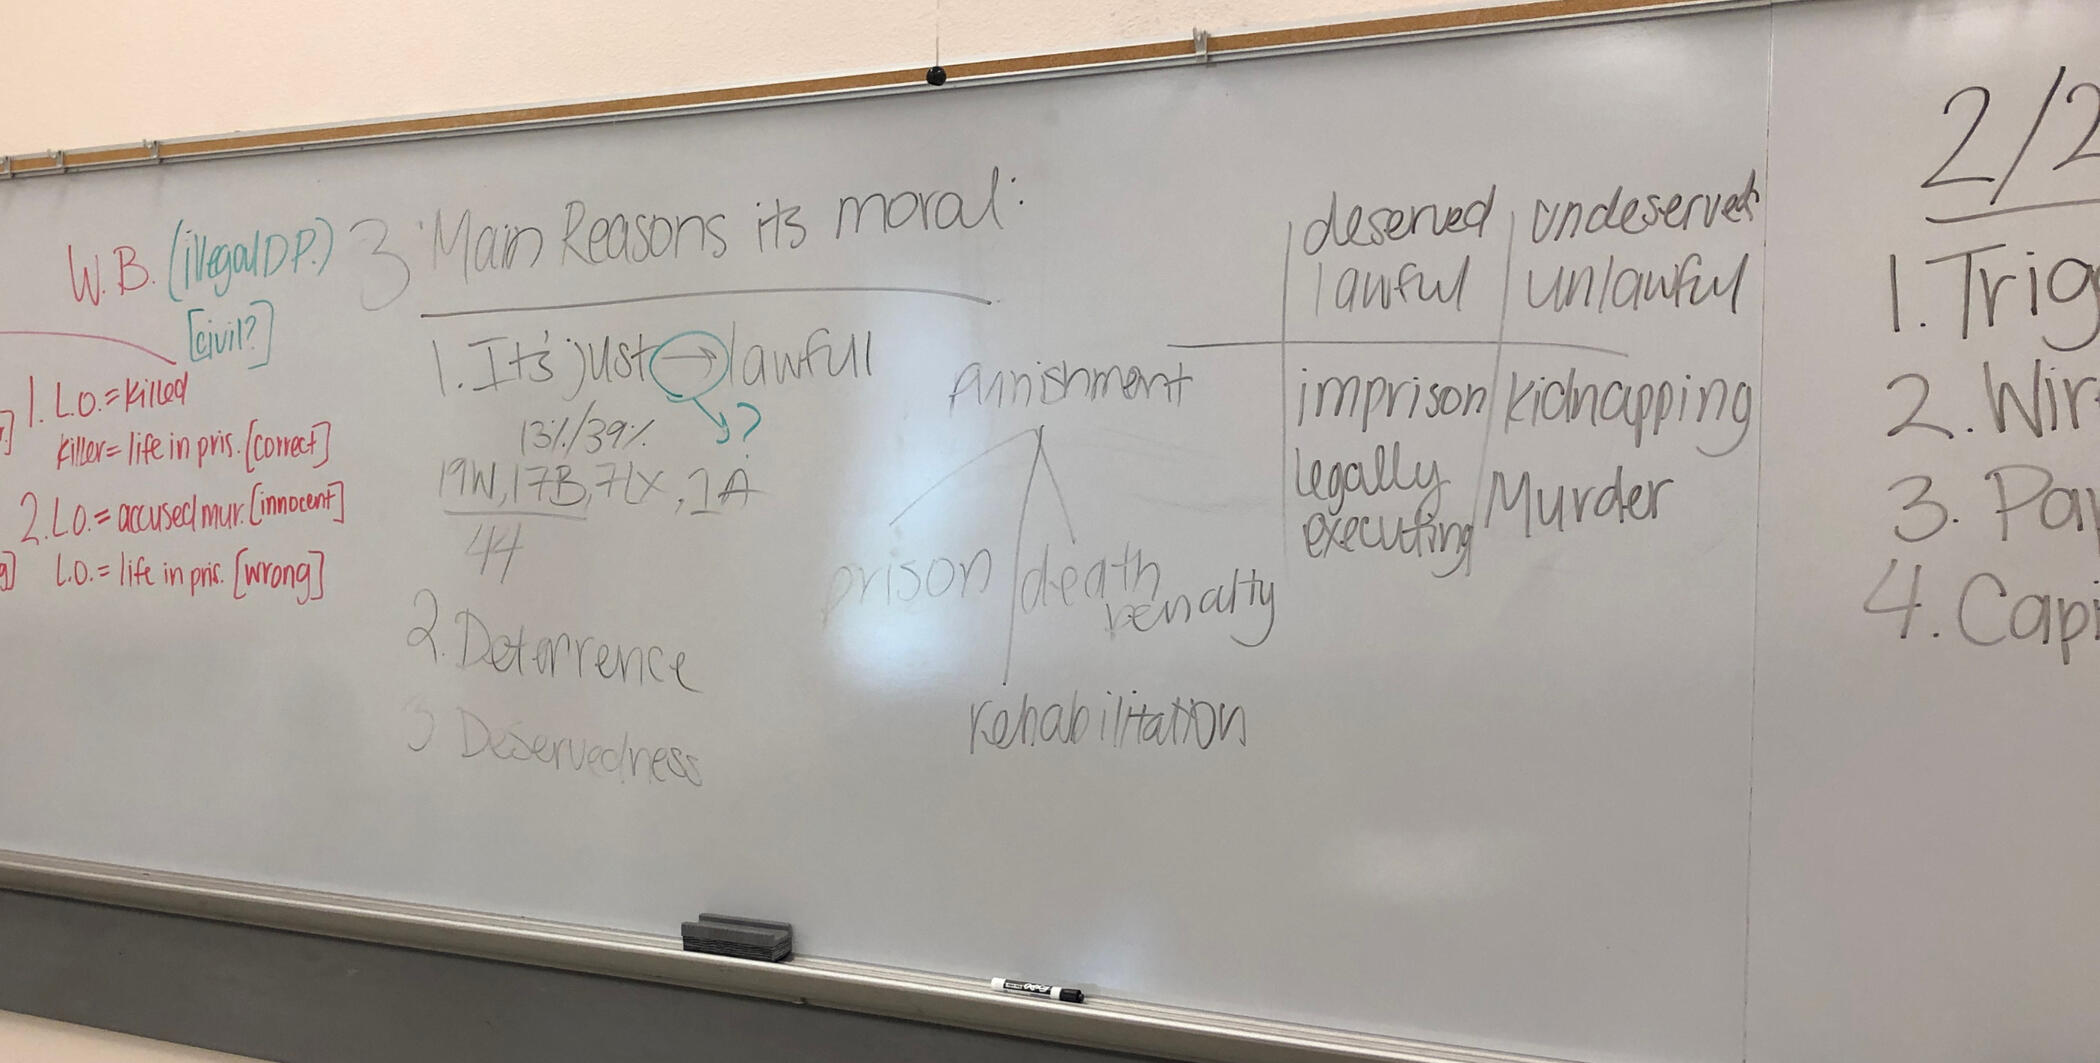 W.B. (illegal D.P.)
[civil?]
1. L.O. = killed
killer = life in pris. [correct]
2. L.O. = accused mur. [innocent]
L.O. = life in pris. [wrong]
3 Main Reasons its moral:
1. It's just → lawful
?
13%/39%
19W, 17B, 7LX, 1A
44
2. Deterrence
3 Deservedness
punishment
prison
death
penalty
rehabilitation
deserved undeserved
lawful unlawful
imprison kidnapping
legally
executing Murder
2/2
1. Trig
2. Wir
3. Pa
4. Capi